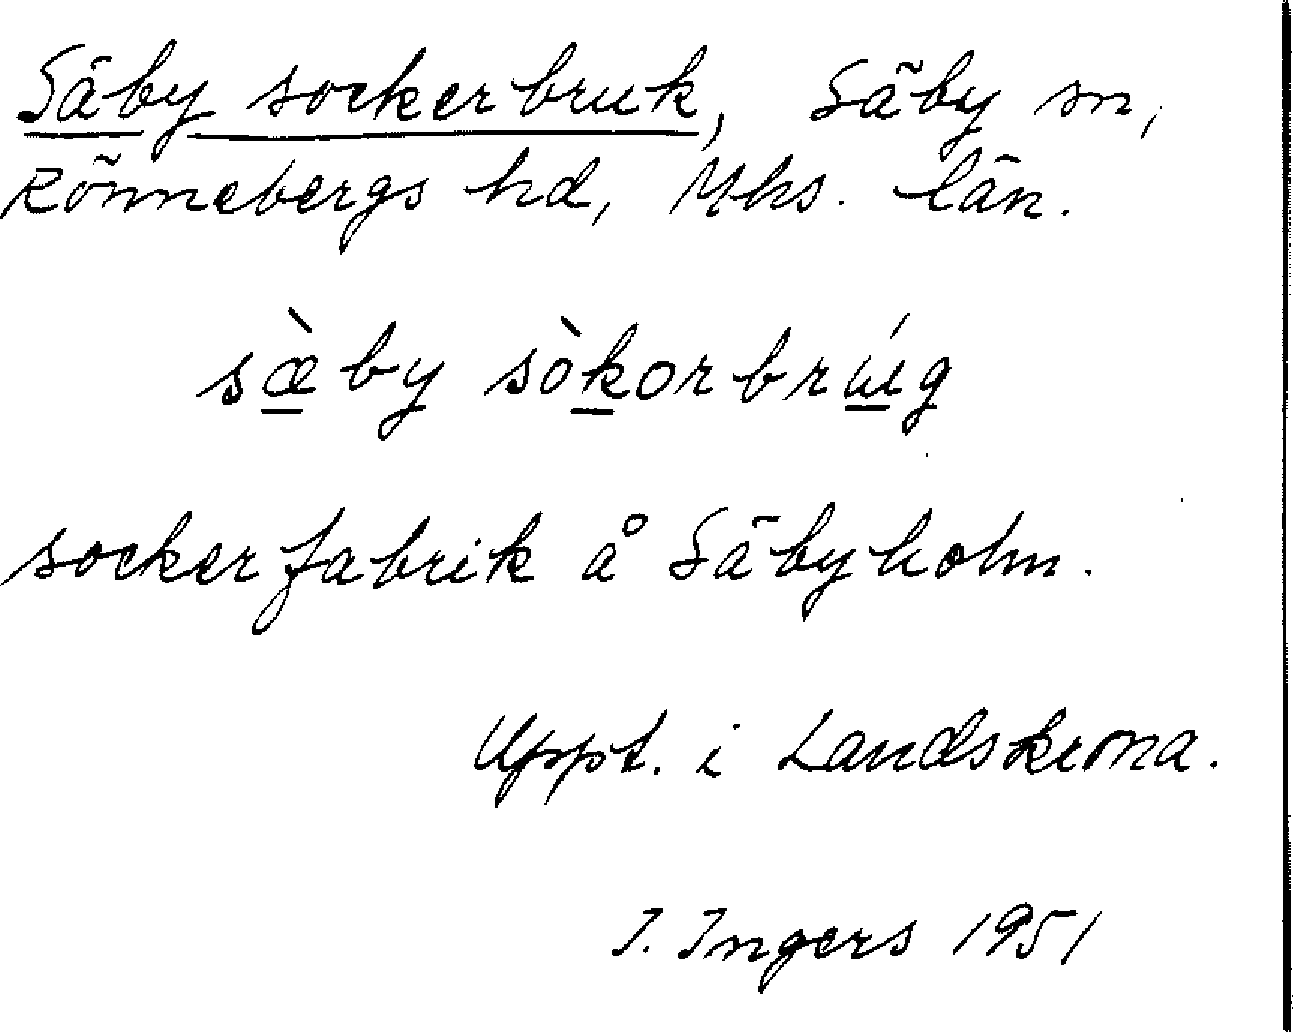 Säby sockerbruk, Säby sn,
Rönnebergs hd, Mhs. län.
sæ̀by sòkorbrúig
sockerfabrik å Säbyholm.
Uppt. i Landskrona.
I. Ingers 1951